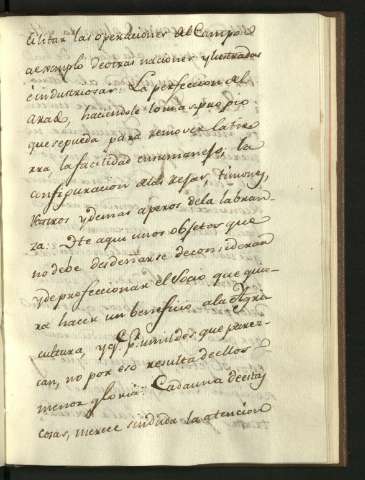 cilitar las operaciones del Campo à
a exemplo de otras naciones y ilustradas
è industriosas. La perfeccion del
arado, haciendole lo mas apropio
que se pueda para remover la tie-
rra, la facilidad en su manejo; la
configuracion de las rejas, timones,
Rastros y demas aperos de la labran-
za. Hè aqui unos objetos que
no debe desdeñarse de considerar
y de proffeccionar el Socio que quie-
ra hacer un beneficio a la Agri-
cultura, y q.e p.r humildes que parez-
can, no por eso resulta de ellos
menor gloria: Cada una de estas
cosas, merece sin duda la atencion